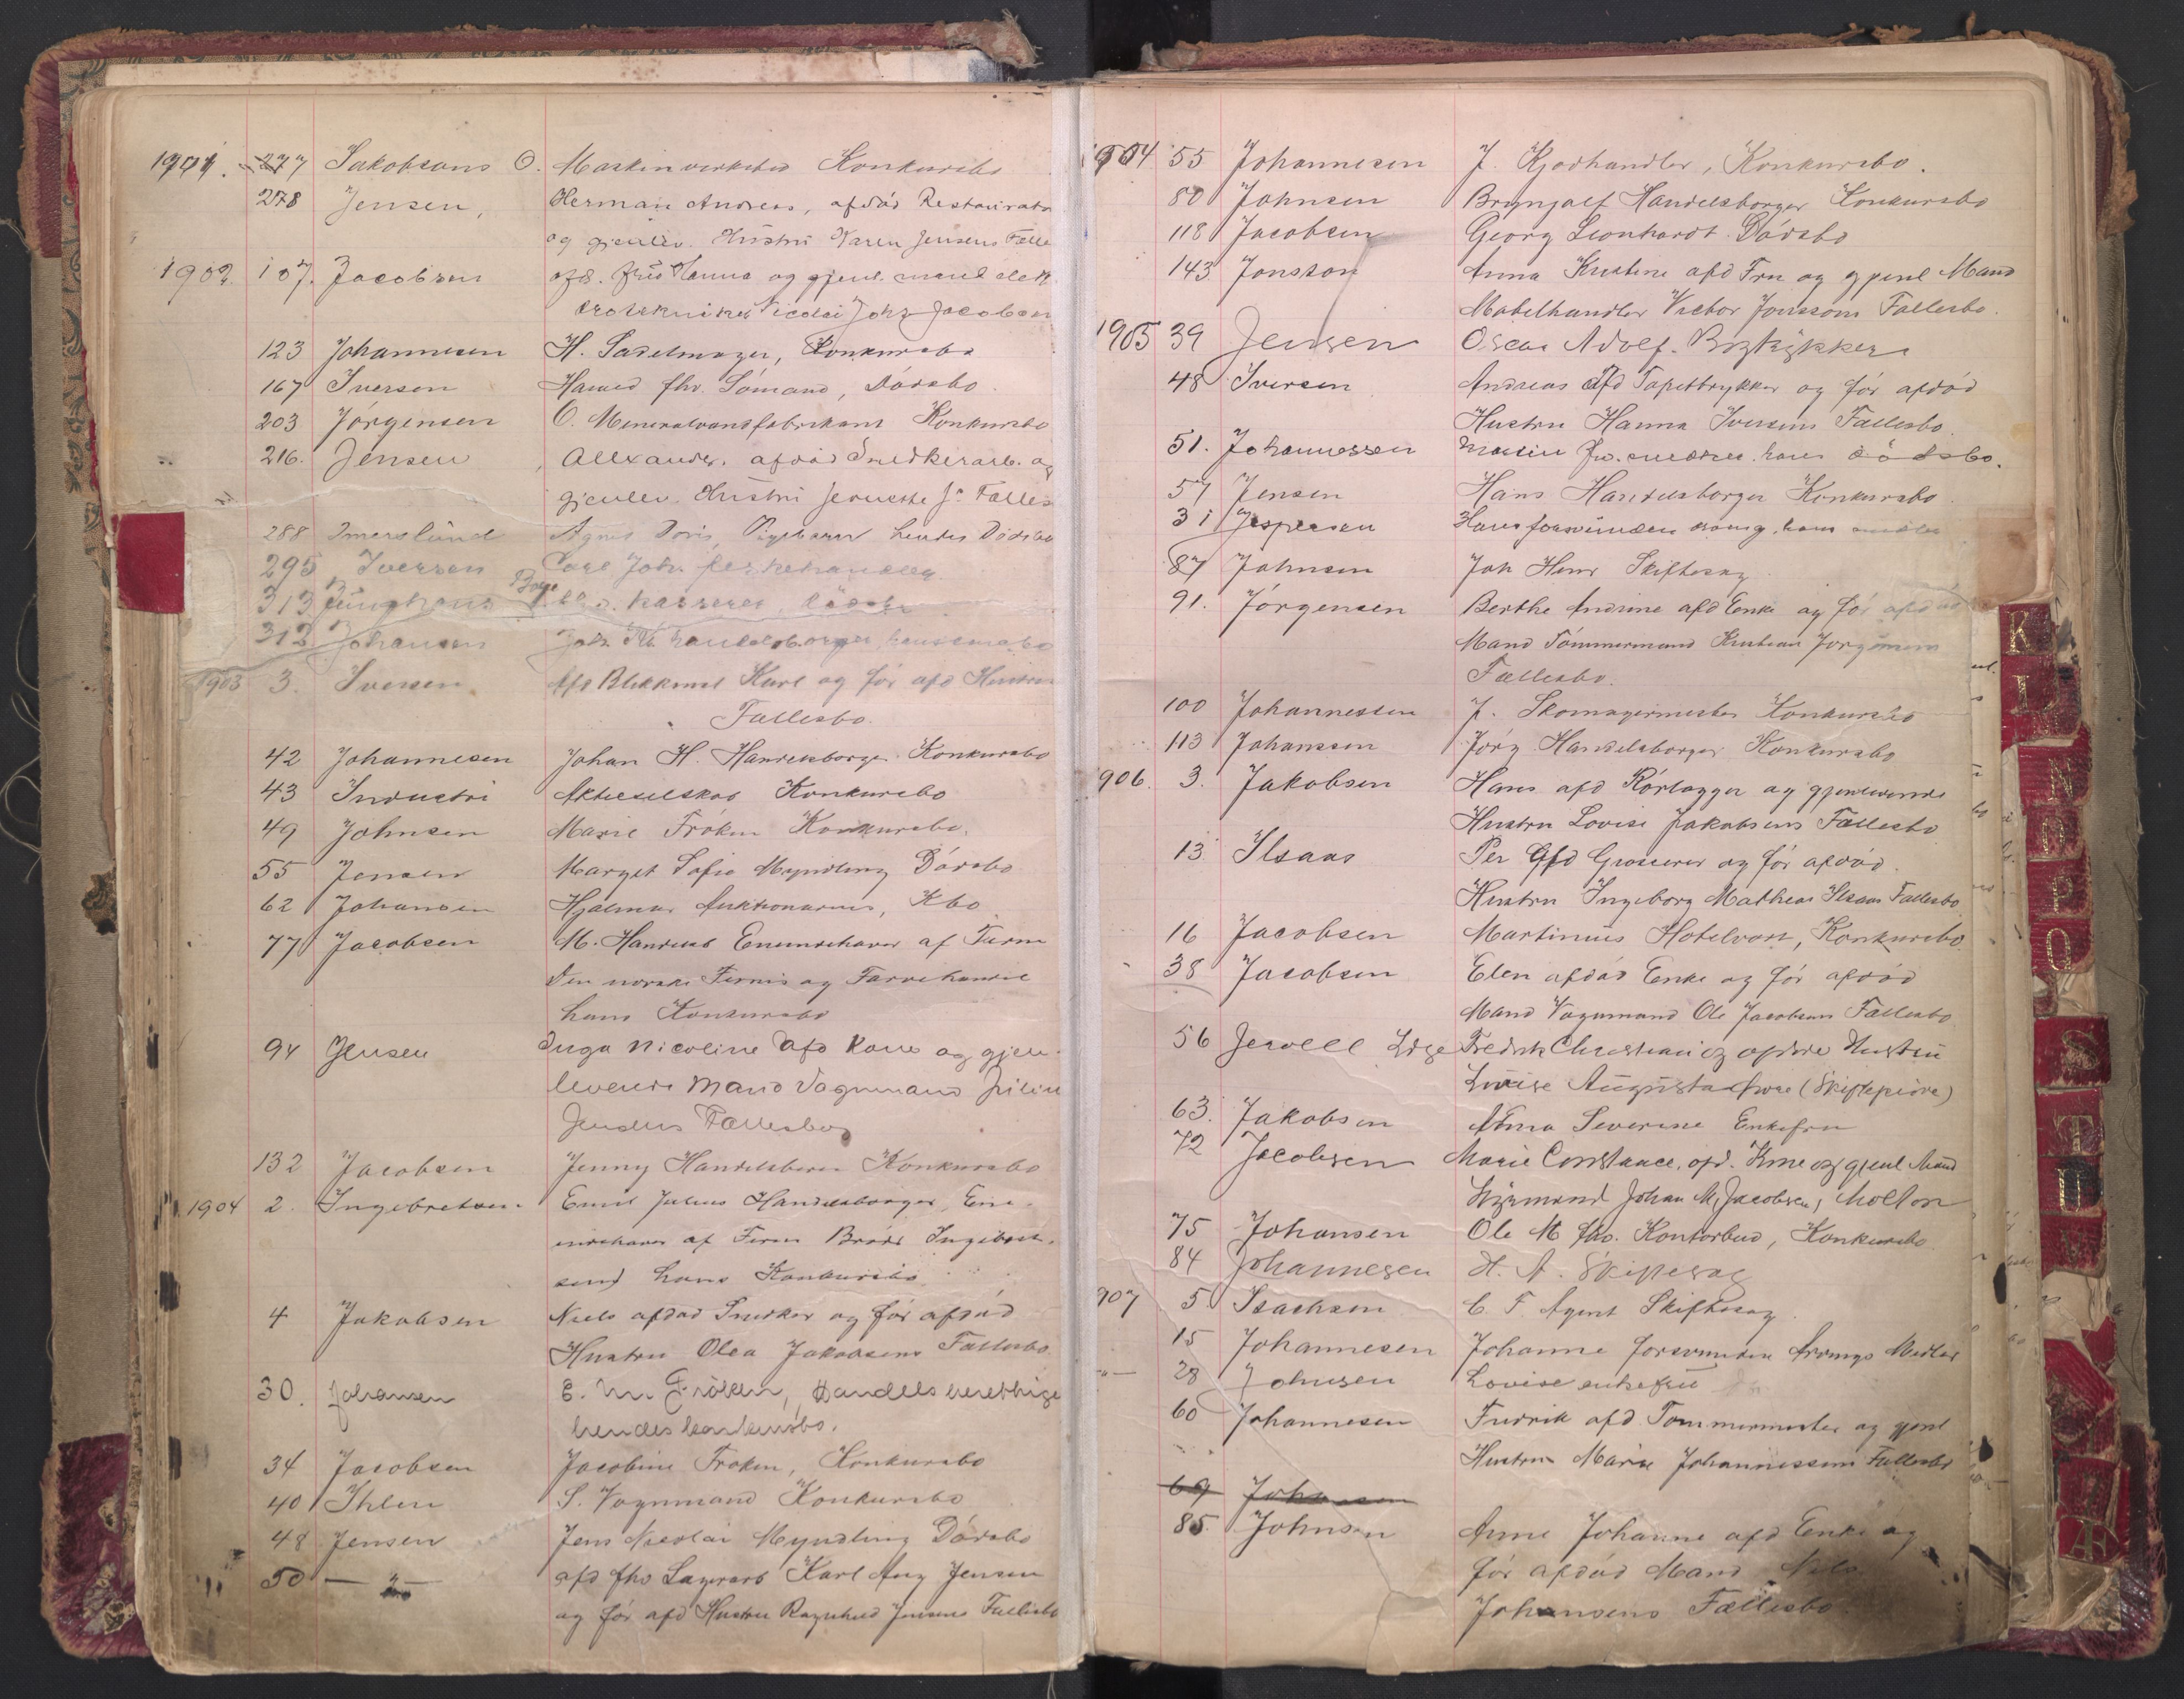 1901. 277 Jakobsens O. Maskinverksted Konkursbo
278 Jensen, Herman Andreas, afdød Restauratør
og gjenlev. Hustru Karen Jensens Fælle
1902. 107. Jacobsen afd. fru Hanna og gjenl. mand elek
trotekniker Nicolai Johs Jacobsen
123 Johannesen H. Sadelmager, Konkursbo
167 Iversen fhv. Sømand, Dødsbo.
203 Jørgensen O. Mineralvandsfabrikant Konkursbo
216. Jensen, Alexander. afdød Snedkerarb. og
gjenlev. Hustru Fælles
288 Imerslund Agnes Doris, Pigebarn hendes Dødsbo
295 Iversen Carl Joh. fiskehandler
313 Junghans kasserer, Dødsbo
312 Johansen Joh. handelsborger, konkursbo
1903 3. Iversen Afd Blikkensl Karl og før afd Hustru
Fællesbo.
42 Johannesen Johan H. Handelsborger Konkursbo
43 Industri Aktieselskab Konkursbo
49 Johnsen Marie Frøken Konkursbo.
55 Jensen Margit Sofie Myndling Dødsbo
62 Johansen Hjalmar Auktionarius, Kbo
77 Jacobsen M. Handelsb Eneindehaver af Firma
Den norske Fernis og Farvehandel
hans Konkursbo
94 Jensen Inga Nicoline Afd Kone og gjen-
levende Mand Vognmand
Jensens Fællesbo
132 Jacobsen Jenny Handelsberet Konkursbo
1904 2. Ingebretsen Emil Julius Handelsborger, Ene-
indehaver af Firma Brødr Ingebret-
sen) hans Konkursbo
4 Jakobsen Niels afdød Snedker og før afdød
Hustru Olea Jakobsens Fællesbo
30. Johansen E. M. Frøken, Handelsberettiget
hendes konkursbo.
34 Jacobsen Jacobine Frøken, Konkursbo
40 Ihlen S. Vognmand Konkursbo
48 Jensen Jens Nicolai Myndling Dødsbo
50 — " — afd fhv Lagerarb Karl Aug Jensen
og før afd Hustru Ragnhild Jensens Fællesbo
1904 55 Johannesen J. Kjødhandler, Konkursbo.
80 Johnsen Brynjulf Handelsborger Konkursbo
118 Jacobsen Georg Leonhardt Dødsbo
143 Jonsson Anna Kristine afd Fru og gjenl Mand
Møbelhandler Victor Jonssons Fællesbo.
1905 39 Jensen Oscar Adolf. Bogtrykker
48 Iversen Andreas Afd Tapettrykker og før afdød
Hustru Hanna Iversens Fællesbo.
51. Johannessen Martin fhv. hans dødsbo.
57 Jensen Hans Handelsborger Konkursbo
31 Jespersen Hans forsvunden
87 Johnsen Joh Henr Skiftesag
91. Jørgensen Berthe Andrine afd Enke og før afdød
Mand Tømmermand Kristian Jørgensens
Fællesbo.
100 Johannessen J. Skomagermester Konkursbo
113 Johanssen Jørg. Handelsborger Konkursbo
1906. 3. Jakobsen Hans afd Rørlægger og gjenlevende
Hustru Lovise Jakobsens Fællesbo
13 Ilsaas Per Afd Grosserer og før afdød
Hustru Ingeborg Mathea Ilsaas Fællesbo
16 Jacobsen Martinius Hotelvært, Konkursbo
38 Jacobsen Elen afdød Enke og før afdød
Mand Vognmand Ole Jacobsens Fællesbo
56 Jewell Fredrik Christian og afdøde Hustru
Louise Augusta
63. Jakobsen Anna Severine Enkefru
72 Jacobsen Marie Constance, afd. Kone og gjenl Mand
Johan M. Jacobsen,
75 Johansen Ole M fhv. Kontorbud, Konkursbo
84 Johannesen H. A. Skiftesag
1907 5 Isachsen C. F. Agent Skiftesag.
15 Johannesen Johanne forsvunden Arvings Midler
—"— 28 Johnsen Lovise enkefru
60 Johannesen Fredrik afd. Tømmermester og gjenl
Hustru Marie Johannessens Fællesbo
69 Johansen
85. Johnsen Anne Johanne afd Enke og
før afdød Mand Nils
Johansens Fællesbo
K L M N O P Q S T U